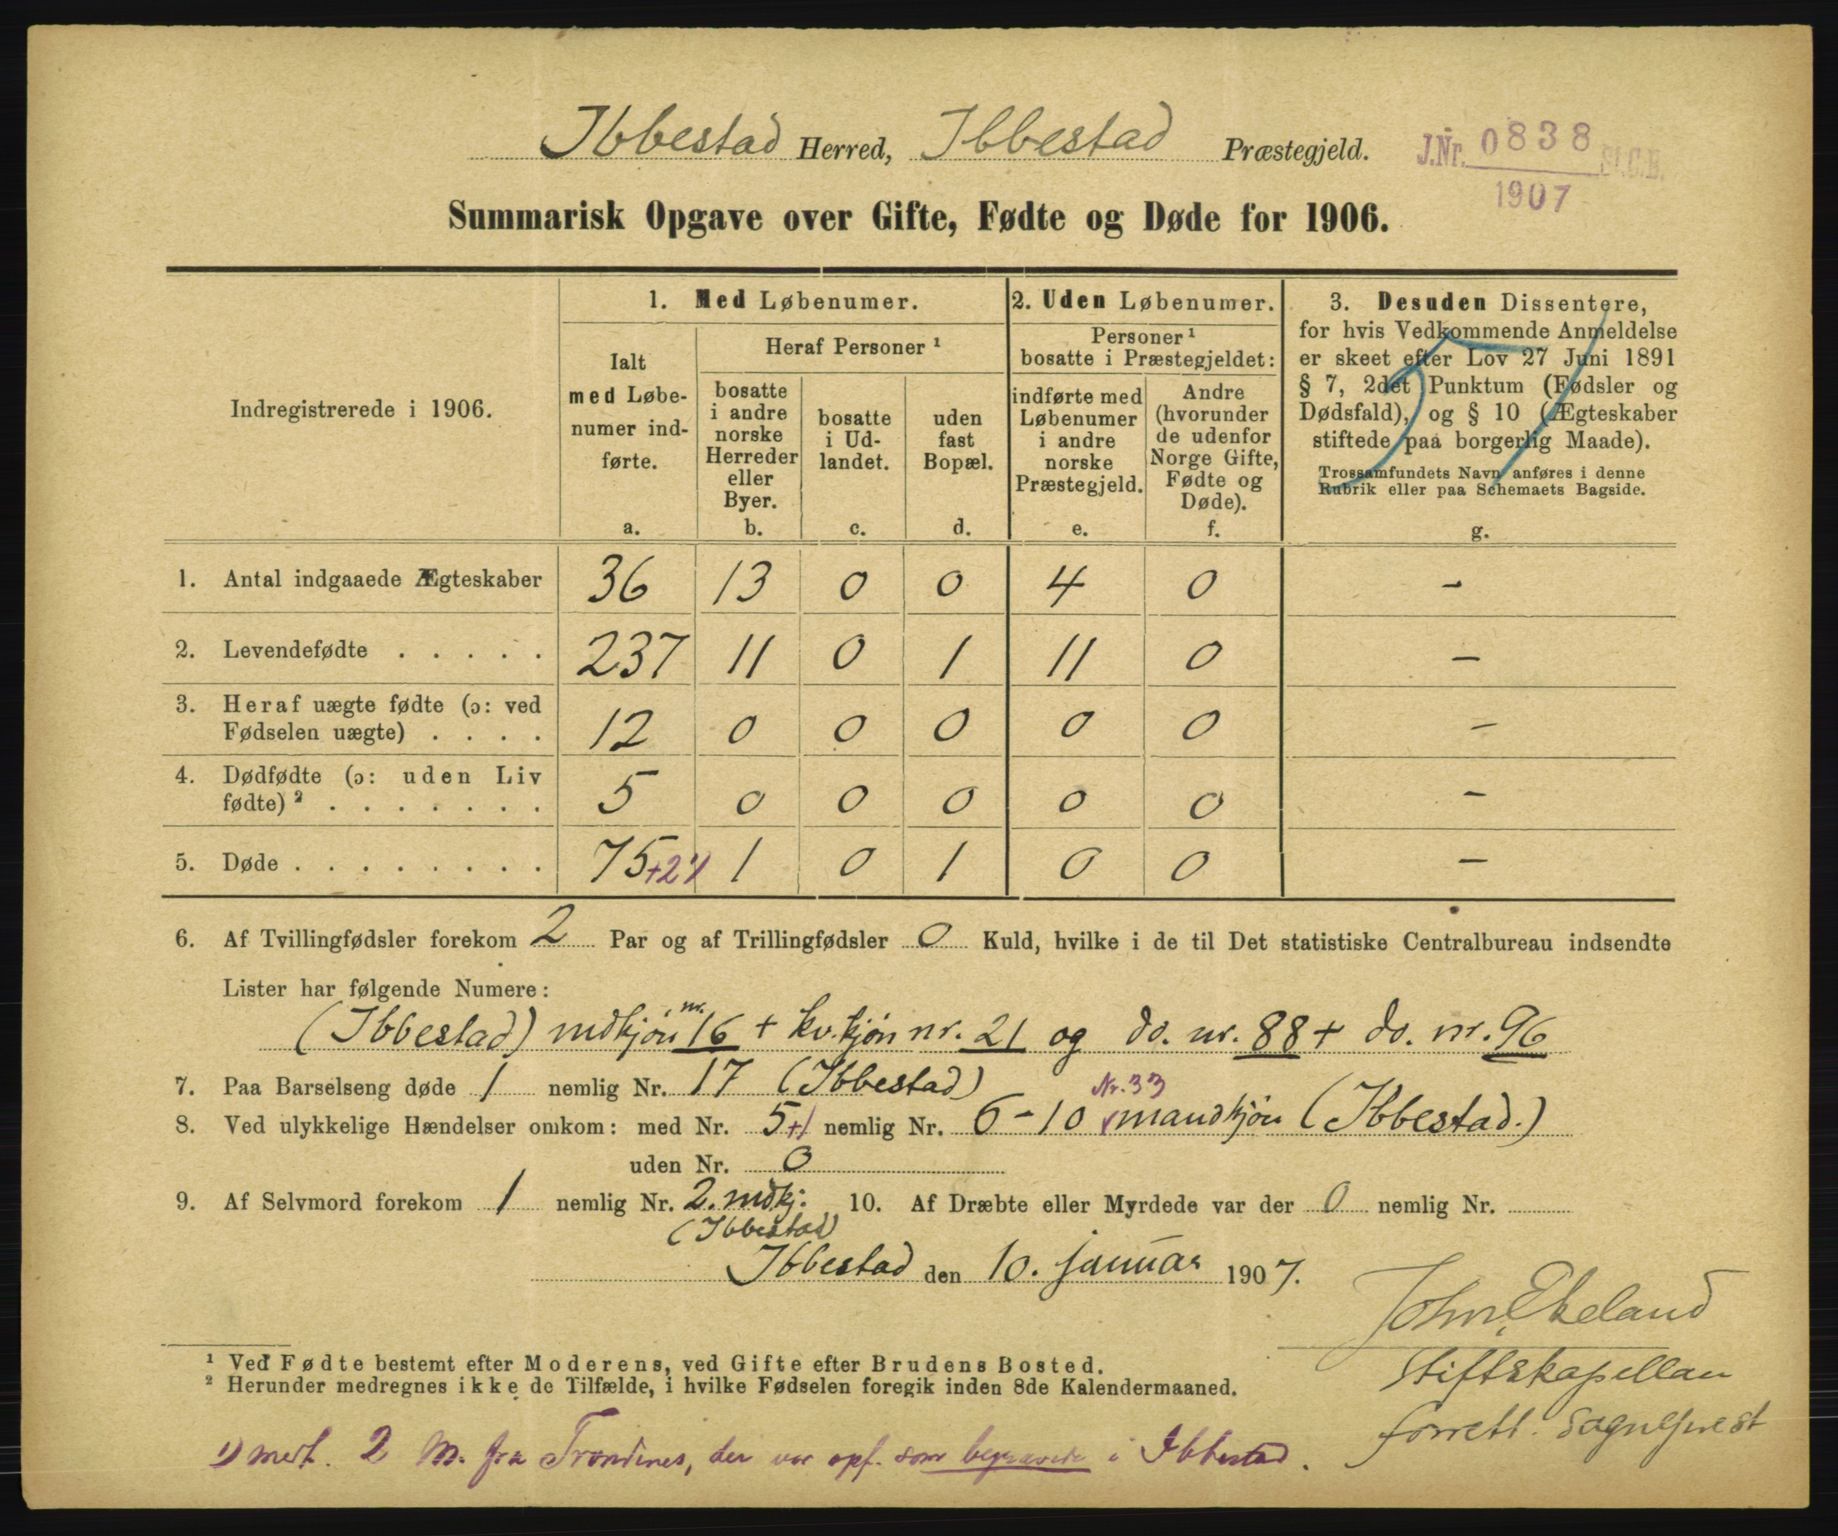 Ibbestad Herred, Ibbestad Præstegjeld.
J.Nr. 0838 St.C.B.
1907
Summarisk Opgave over Gifte, Fødte og Døde for 1906.
Indregistrerede i 1906.
1. Med Løbenumer.
Ialt
med Løbe-
numer ind-
førte.
a.
Heraf Personer ¹
bosatte
i andre
norske
Herreder
eller
Byer.
b.
bosatte
i Ud-
landet.
c.
uden
fast
Bopæl.
d.
2. Uden Løbenumer.
Personer ¹
bosatte i Præstegjeldet:
indførte med
Løbenumer
i andre
norske
Præstegjeld.
e.
Andre
(hvorunder
de udenfor
Norge Gifte,
Fødte og
Døde).
f.
3. Desuden Dissentere,
for hvis Vedkommende Anmeldelse
er skeet efter Lov 27 Juni 1891
§ 7, 2det Punktum (Fødsler og
Dødsfald), og § 10 (Ægteskaber
stiftede paa borgerlig Maade).
Trossamfundets Navn anføres i denne
Rubrik eller paa Schemaets Bagside.
g.
1. Antal indgaaede Ægteskaber 36 13 0 0 4 0 –
2. Levendefødte . . . . . 237 11 0 1 11 0 –
3. Heraf uægte fødte (ɔ: ved
Fødselen uægte) . . . . 12 0 0 0 0 0 –
4. Dødfødte (ɔ: uden Liv
fødte) ² . . . . . . . 5 0 0 0 0 0 –
5. Døde . . . . . . . . 75+2¹⁄ 1 0 1 0 0 –
6. Af Tvillingfødsler forekom 2 Par og af Trillingfødsler 0 Kuld, hvilke i de til Det statistiske Centralbureau indsendte
Lister har følgende Numere:
(Ibbestad) mdkjøn nr. 16 + kv.kjøn nr. 21 og do. nr. 88 + do. nr. 96
7. Paa Barselseng døde 1 nemlig Nr. 17 (Ibbestad)
Nr. 33
8. Ved ulykkelige Hændelser omkom: med Nr. 5+1 nemlig Nr. 6–10 mandkjøn (Ibbestad.)
uden Nr. 0
9. Af Selvmord forekom 1 nemlig Nr. 2. mdkj: 10. Af Dræbte eller Myrdede var der 0 nemlig Nr.
(Ibbestad)
Ibbestad den 10. januar 1907.
John Ekeland
Stiftskapellan
forrett. Sogneprest
¹ Ved Fødte bestemt efter Moderens, ved Gifte efter Brudens Bosted.
² Herunder medregnes ikke de Tilfælde, i hvilke Fødselen foregik inden 8de Kalendermaaned.
1) mert. 2 M. fra Trondenes, der var opf. som begravede i Ibbestad.